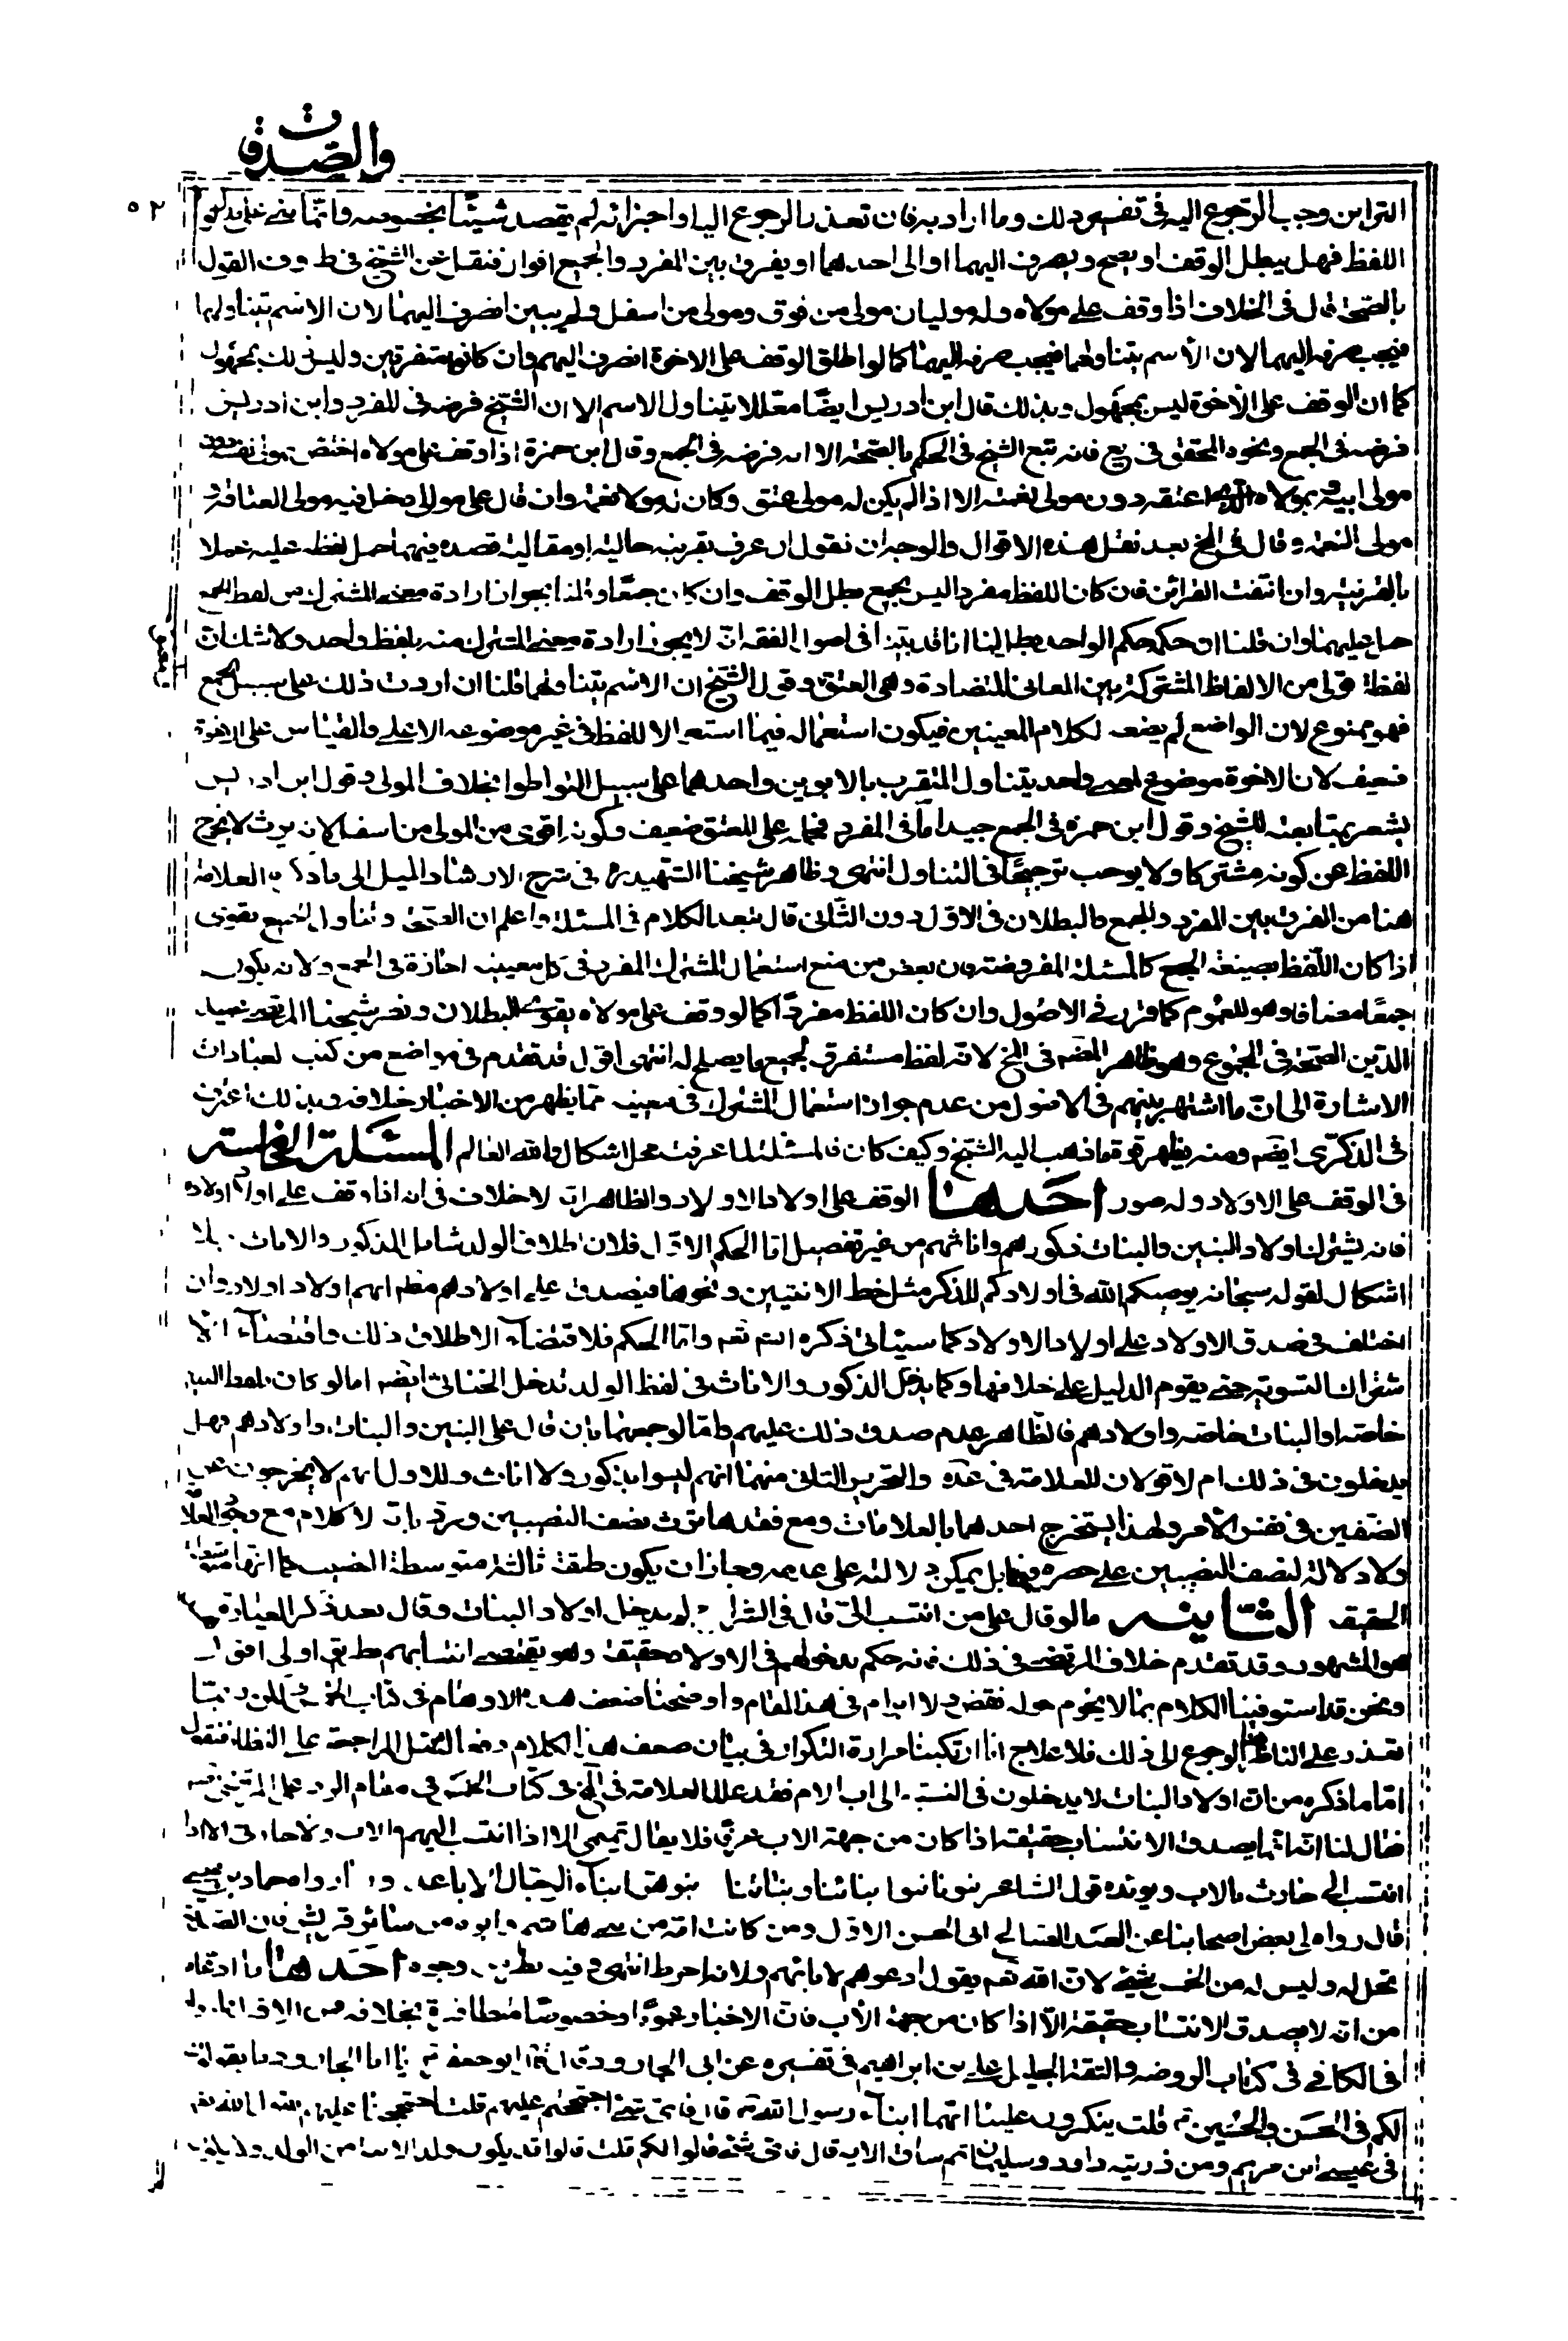 والصدقات
٥٢
القراين وجب الرجوع اليه في تفسير ذلك وما اراد به فان تعذر الرجوع اليه او اخبر انه لم يقصد شيئا بخصوصه وانما وقف على مدلول
اللفظ فهل يبطل الوقف او يصح ويصرف اليهما او الى احدهما او يفرق بين المفرد والجمع اقوال فنقل عن الشيخ في ط وف القول
بالصحة قال في الخلاف اذا وقف على مولاه وله موليان مولى من فوق ومولى من اسفل ولم يبين انصرف اليهما لان الاسم يتناولهما
فيجب صرفه اليهما لان الاسم يتناولهما فيجب صرفه اليهما كما لو اطلق الوقف على الاخوة انصرف اليهم وان كانوا متفرقين وليس ذلك بمجهول
كما ان الوقف على الاخوة ليس بمجهول وبذلك قال ابن ادريس ايضا معللا بتناول الاسم الا ان الشيخ فرضه في المفرد وابن ادريس
فرضه في الجمع ونحوه المحقق في يع فانه تبع الشيخ في الحكم بالصحة الا انه فرضه في الجمع وقال ابن حمزة اذا وقف على مولاه اختص بمولى نفسه دون
مولى ابيه وبمولاه الذي اعتقه دون مولى نعمته الا اذا لم يكن له مولى عتق وكان له مولا نعمة وان قال على موالي دخل فيه مولى العتاقة و
مولى النعمة وقال في المخ بعد نقل هذه الاقوال والوجه ان نقول ان عرف بقرينة حالية او مقالية قصده فيهما حمل لفظه عليه عملا
بالقرينة وان انتفت القرائن فان كان اللفظ مفردا ليس بجمع بطل الوقف وان كان جمعا وقلنا بجواز ارادة معنى المشترك من لفظ الجمع
حمل عليهما وان قلنا ان حكمه حكم الواحد بطل لنا انا قد بينا في اصول الفقه انه لا يجوز ارادة معنى المشترك منه بلفظ واحد ولا شك ان
لفظة مولى من الالفاظ المشتركة بين المعاني المتضادة وهى العتق وقول الشيخ ان الاسم يتناولهما قلنا ان اردت ذلك على سبيل الجمع
فهو ممنوع لان الواضع لم يضعه لكلام المعنيين فيكون استعماله فيهما استعمالا للفظ في غير موضوعه الاعلى والقياس على الاخوة
ضعيف لان الاخوة موضوع لمعنى واحد يتناول المتقرب بالابوين واحدهما على سبيل التواطؤ بخلاف المولى وقول ابن ادريس
يشعر بمتابعته للشيخ وقول ابن حمزة في الجمع جيد اما في المفرد فحمله على المعتق ضعيف وكونه اقوى من المولى من اسفل لانه يرث لا يخرج
اللفظ عن كونه مشتركا ولا يوجب ترجيحا في التناول انتهى وظاهر شيخنا الشهيد ره في شرح الارشاد الميل الى ما ذكره العلامة
هنا من الفرق بين المفرد والجمع بالبطلان في الاول دون الثاني قال بعد الكلام في المسئلة واعلم ان الصحة وتناول الجميع يقوى
اذا كان اللفظ بصيغة الجمع كالمسئلة المفروضة فان بعض من منع استعمال المشترك المفرد في كل معنييه اجازه في الجمع ولانه يكون
جمعا مضافا وهو للعموم كما قرر في الاصول وان كان اللفظ مفردا كما لو وقف على مولاه يقوى البطلان ونصر شيخنا المرتضى عميد
الدين الصحة في المجموع وهو ظاهر المصنف في المخ لانه لفظ مستغرق لجميع ما يصلح له انتهى اقول قد تقدم في مواضع من كتب العبادات
الاشارة الى ان ما اشتهر بينهم في الاصول من عدم جواز استعمال المشترك في معنييه مما يظهر من الاخبار خلافه وبذلك اعترف
في الذكرى ايضا ومنه يظهر قوة ما ذهب اليه الشيخ وكيف كان فالمسئلة لما عرفت محل اشكال والله العالم المسئلة الخامسة
في الوقف على الاولاد وله صور احدها الوقف على اولاد الاولاد والظاهر انه لا خلاف في انه اذا وقف على اولاد اولاده
فانه يشترك اولاد البنين والبنات ذكورهم واناثهم من غير تفصيل اما الحكم الاول فلان اطلاق الولد شامل للذكور والاناث بلا
اشكال لقوله سبحانه يوصيكم الله في اولادكم للذكر مثل حظ الانثيين ونحوها فيصدق على اولادهم مط انهم اولاد اولاد وان
اختلف في صدق الاولاد على اولاد الاولاد كما سيأتي ذكره انش تعه واما الحكم فلاقتضاء الاطلاق ذلك واقتضاء الا
شتراك التسوية حتى يقوم الدليل على خلافها وكما يدخل الذكور والاناث في لفظ الولد تدخل الخناثى ايضا اما لو كان بلفظ البنين
خاصة او البنات خاصة واولادهم فالظاهر عدم صدق ذلك عليهم واما لو جمعهما بان قال على البنين والبنات واولادهم فهل
يدخلون في ذلك ام لا قولان للعلامة في عد والتحرير الثاني منهما انهم ليسوا بذكور ولا اناث وللاول انهم لا يخرجون عن
الصنفين في نفس الأمر ولهذا يستخرج احدهما بالعلامات ومع فقدها يورث نصف النصيبين ورد بان لا كلام مع وجود العلامة
ولا دلالة لنصف النصيبين على حصره فيهما بل يمكن دلالته على عدمه وجاز ان يكون طبقة ثالثة متوسطة النصيب كما انها متوسطة
الحقيقة الثانية ما لو قال على من انتسب الي قال في الشرايع لم يدخل اولاد البنات وقال بعد ذكر العبارة
هو المشهور وقد تقدم خلاف المرتضى في ذلك فانه حكم بدخولهم في الاولاد حقيقة وهو يقتضى انتسابهم بطريق اولى اقول
ونحن قد استوفينا الكلام بما لا يحوم حوله نقض ولا ابرام في هذا المقام واوضحنا ضعف هذه الاوهام في كتاب الخمس لكن ربما
تعذر على الناظر هنا الرجوع الى ذلك فلا علاج انا ارتكبنا مرارة التكرار في بيان ضعف هذا الكلام دفعا لثقل المراجعة على النظار فنقول
اما ما ذكره من ان اولاد البنات لا يدخلون في النسبة الى اب الام فقد علله العلامة في المخ في كتاب الخمس في مقام الرد على المرتضى رضي
فقال لنا انه انما يصدق الانتساب حقيقة اذا كان من جهة الاب عرفا فلا يقال تميمى الا اذا انتسب اليهم بالاب ولا حارثى الا اذا
انتسب الى حارث بالاب ويؤيده قول الشاعر بنونا بنوا بنائنا وبناتنا بنوهن ابناء الرجال الاباعد وما رواه حماد بن عيسى
قال رواه لي بعض اصحابنا عن العبد الصالح ابى الحسن الاول ومن كانت امه من بنى هاشم وابوه من سائر قريش فان الصدقة
تحل له وليس له من الخمس شيء لان الله تعه يقول ادعوهم لابائهم ولانه احوط انتهى وفيه نظر من وجوه احدها ما ادعاه
من انه لا يصدق الانتساب حقيقة الا اذا كان من جهة الأب فان الاخبار عموما وخصوصا متظافرة بخلافه فمن الاول ما رواه
في الكافي في كتاب الروضه والثقة الجليل على بن ابراهيم في تفسيره عن ابى الجارود قال قال ابو جعفر ع يا ابا الجارود ما يقولون
لكم في الحسن والحسين ع قلت ينكرون علينا انهما ابناء رسول الله ص قال فباى شئ احتججتم عليهم قلت احتججنا عليهم بقول الله تعه
في عيسى ابن مريم ومن ذريته داود وسليمان ثم ساق الاية قال فاى شئ قالوا لكم قلت قالوا قد يكون ولد الابنة من الولد ولا يكون